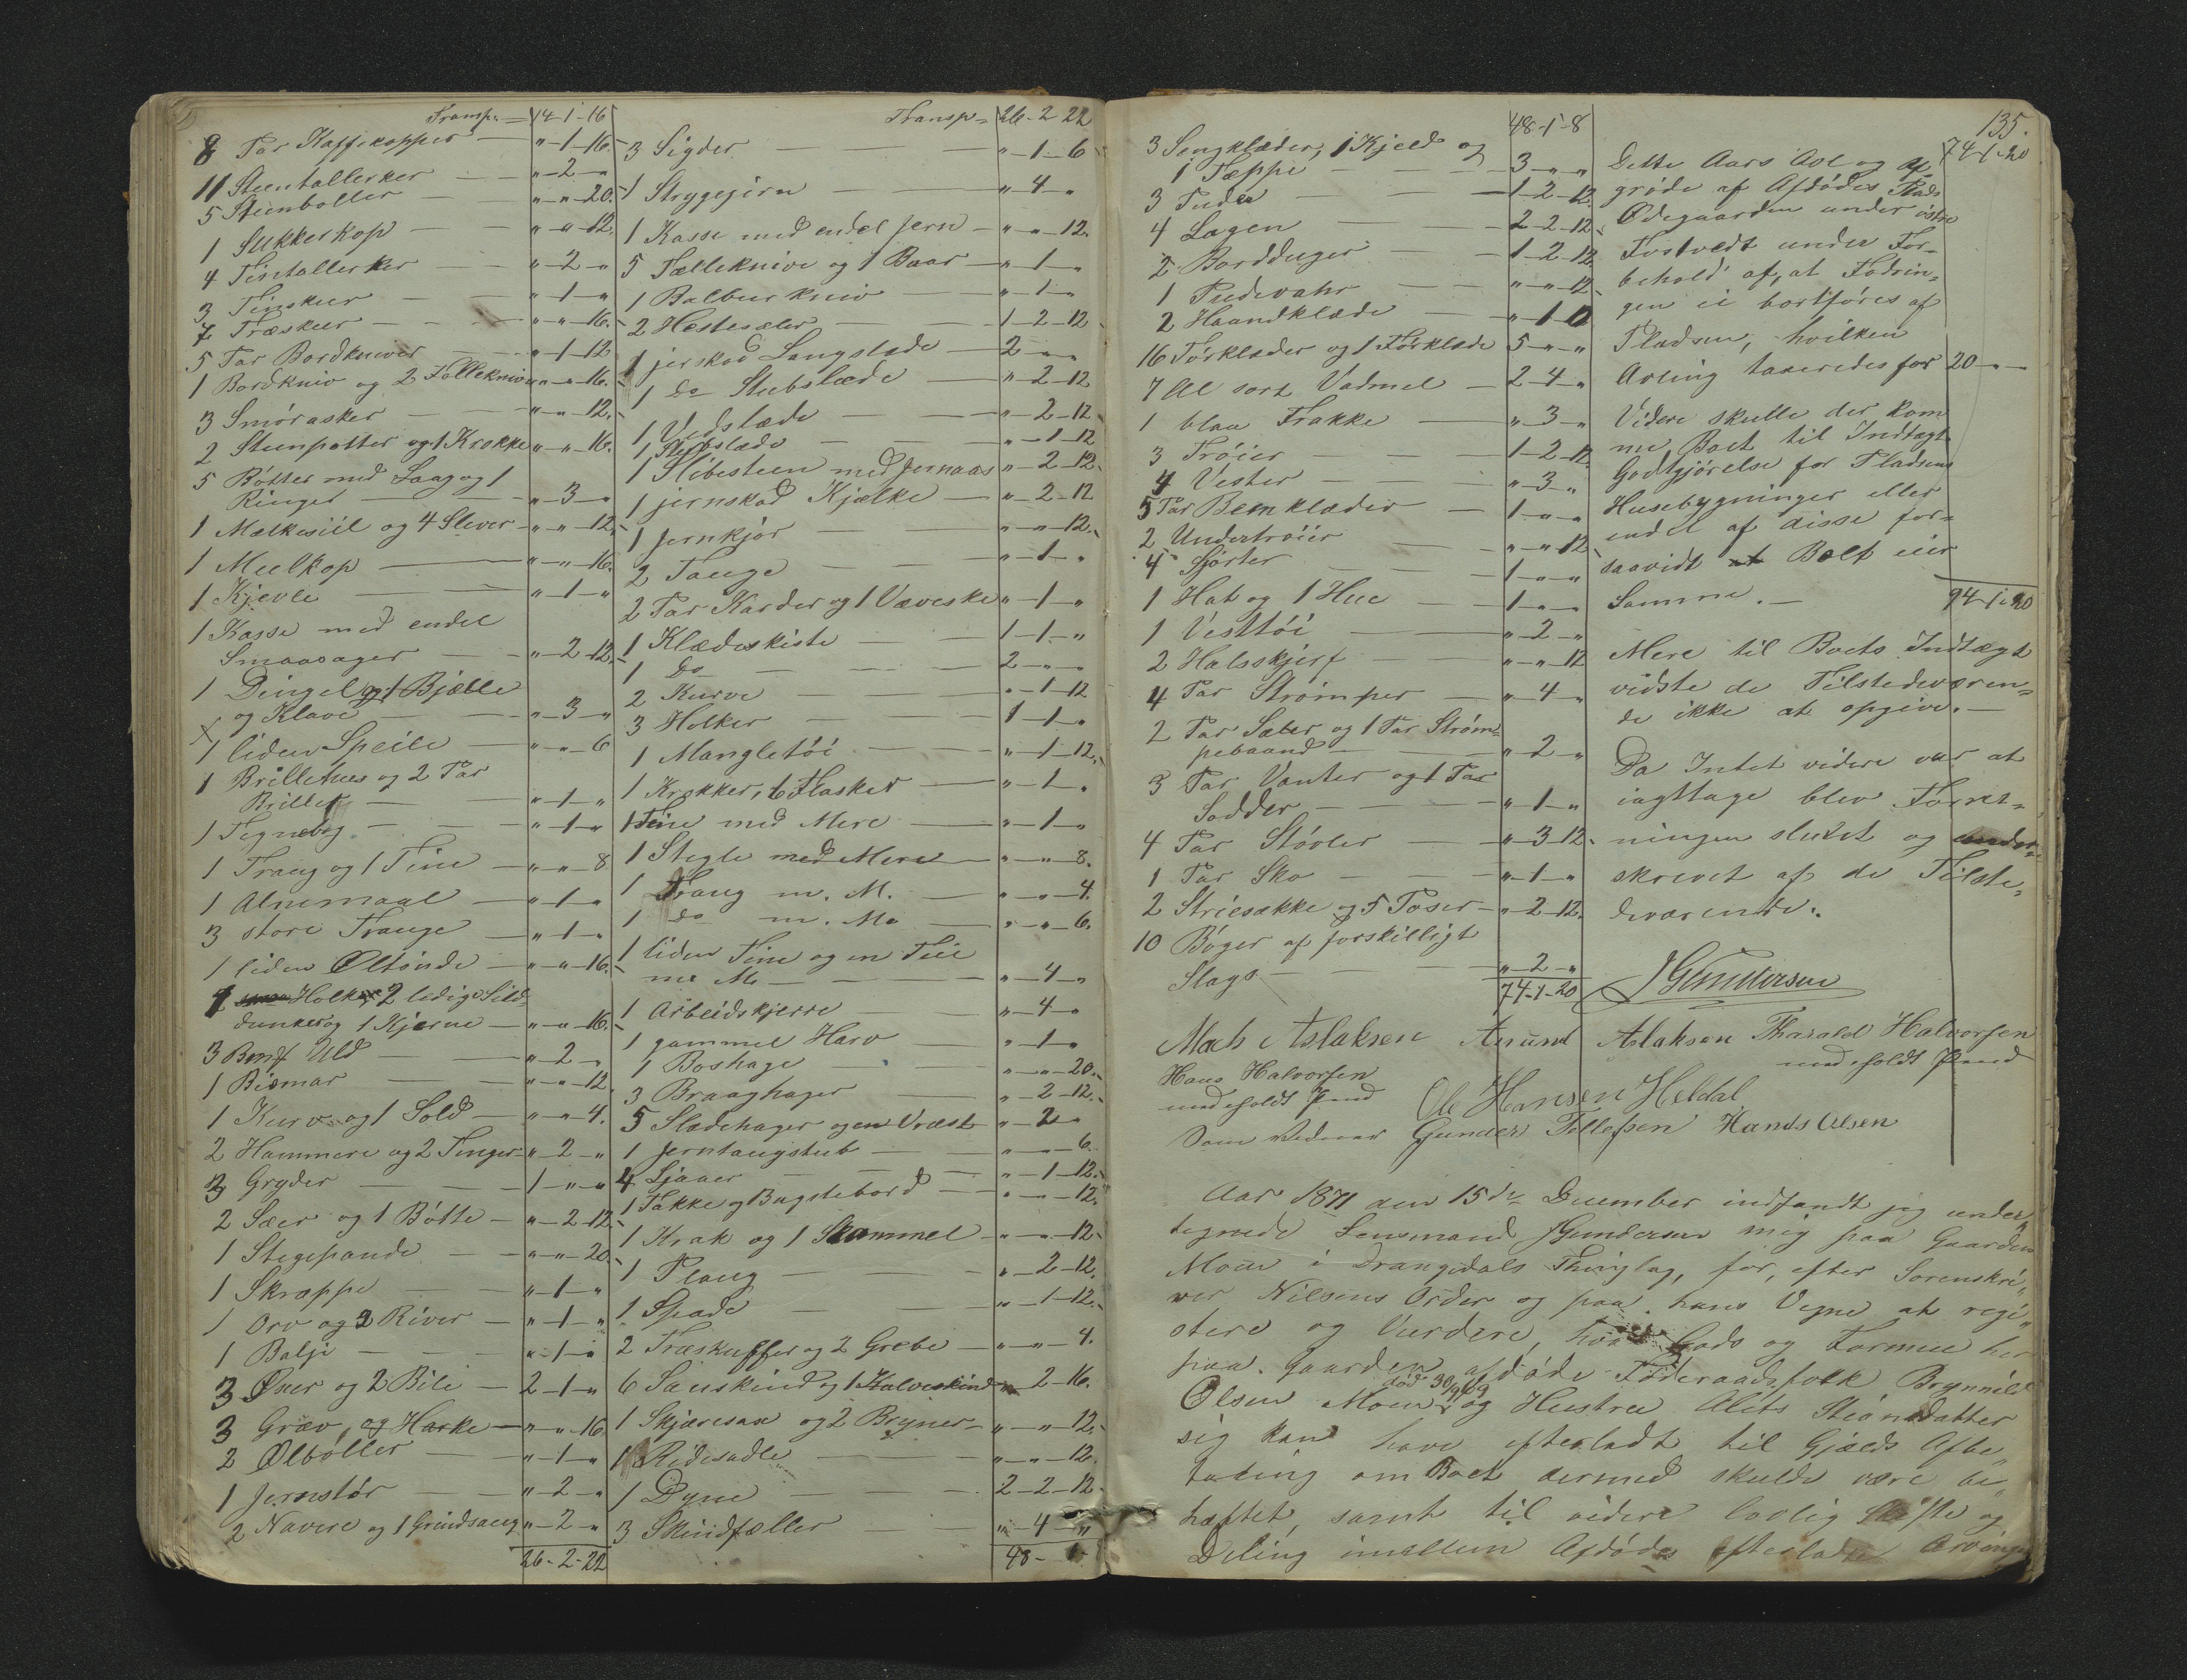 Transp. = 14-1-16
8 Par Kaffekopper — „-1-16.
11 Steentallerker — „-2-„
5 Steenboller — „-„-20.
1 Sukkerkop — „-„-12.
4 Tintallerker — „-2-„
3 Tinskeer — „-1-„
7 Træskeer — „-„-16.
5 Par Bordkniver — „-1-12
1 Bordkniv og 2 Follekniv „-„-16.
3 Smørasker — „-„-12.
2 Steenpotter og 1 Krokke „-„-16.
5 Bøtter med Laag og 1
Ringet — „-3-„
1 Melkesiil og 4 Slever — „-„-12.
1 Meelkop — „-„-16.
1 Kjevle — „-1-„
1 Kasse med endel
Smaasager — „-2-12.
1 Dingel og 1 Bjælle
og Klave — „-3-„
1 liden Speile — „-„-6
1 Brillehus og 2 Par
Briller — „-1-„
1 Tegnebog — „-1-„
1 Traug og 1 Tine — „-„-8
1 Alnemaal — „-1-„
3 store Trauge — „-1-„
1 liden Øltønde — „-„-16.
1 Holk 2 ledige Sild
dunker og 1 Kjerne — „-„-16.
3 Bmf Uld — „-2-„
1 Bismar — „-„-12
1 Kurv og 1 Sold — „-„-4.
2 Hammere og 2 Tenger — „-2-„
3 Gryder — 1-„-„
2 Sæer og 1 Bøtte — „-2-12.
1 Stegepande — „-„-20.
1 Skrappe — „-1-„
1 Orv og 2 River — „-1-„
1 Balje — „-1-„
3 Øxer og 2 Bile — 2-1-„
3 Græv, og Harke — „-„-16
2 Ølboller — „-1-„
1 Jernstør — „-2-„
2 Navere og 1 Grindsaug „-2-„
26-2-22
Transp = 26-2-22
3 Sigder — „-1-6
1 Strygejern — „-4-„
1 Kasse med endel Jern — „-„-12.
5 Tælleknive og 1 Baar — „-1-„
1 Balbeerkniv — „-1-„
2 Hestesæler — 1-2-12
1 jerskod Langslæde — 2-„-„
1 do Stubslæde — „-2-12
1 Vedslæde — „-2-12
1 Stubslæde — „-1-12
1 Slibesteen med Jernaas „-2-12.
1 jernskod Kjælke — „-2-12
1 Jernkjør — „-„-12.
2 Tauge — „-1-„
2 Par Karder og 1 Væveske „-1-„
1 Klædeskiste — 1-1-„
1 do — 2-„-„
2 Kurve — „-1-12
3 Holker — 1-1-„
1 Mangletøi — „-1-12.
1 Krokker, 6 Flasker — „-1-„
1 Tine med Mere — „-1-„
1 Stegle med Mere — „-„-8.
1 Traug m. M. — „-„-4.
1 do m. Me — „-„-6.
1 liden Tine og en Tiie
me M. — „-4-„
1 Arbeidskjerre — „-4-„
1 gammel Harv — „-1-„
1 Boshage — „-„-20.
3 Braaghager — „-2-12.
5 Slædehager og en Vræst „-2-„
1 Jerntaugstub — „-„-6.
4 Ljaaer — „-1-12.
1 Takke og Bagstebord — „-„-12.
1 Krak og 1 Skammel — „-„-12.
1 Plaug — „-2-12.
1 Spade — „-1-12.
2 Træskuffer og 2 Grebe — „-„-4.
6 Saueskind og 1 Kalveskind „ 2-16.
1 Skjæresax og 2 Bryner — „-„-12.
1 Ridesadle — „-„-12.
1 Dyne — 2-2-12.
3 Skindfæller — „-4-„
48-1-
48-1-8
3 Sengklæder, 1 Kjeld og
1 Tæppe — 3-„-„
3 Puder — 1-2-12.
4 Lagen — 2-2-12.
2 Bordduger — 1-2-12.
1 Pudevahr — „-„-12.
2 Haandklæde — „-1-12
16 Tørklæder og 1 Forklæde 5-„-„
7 Al sort Vadmel — 2-4-„
1 blaa Frakke — „-3-„
3 Trøier — 1-2-12.
4 Vester — „-3-„
5 Par Benklæder — 1-„-„
2 Undertrøier — „-„-12.
4 Sjorter — 1-„-„
1 Hat og 1 Hue — 1-„-„
1 Vesttøi — „-2-„
2 Halsskjerf — „-„-12
4 Par Strømper — „-4-„
2 Par Sæler og 1 Par Strøm-
pebaand — „-2-„
3 Par Vanter og 1 Par
Sodder — „-1-„
4 Par Støvler — „-3-12.
1 Par Sko — „-1-„
2 Striesække og 5 Poser — „-2-12.
10 Bøger af forskilligt
Slags — „-2-„
74-1-20
135.
74-1-20
Dette Aars Avl og Af-
grøde af Afdødes Plads
Ødegaarden under østre
Tostvedt under For-
behold af, at Fodrin-
gen ei bortføres af
Pladsen, hvilken
Avling taxeredes for 20-„-
Videre skulle der kom
me Boet til Indtægt
Godtgjørelse for Pladsens
Husebygninger eller
endel af disse for-
saavidt Boet eier
Samme. — 94-1-20
Mere til Boets Indtægt
vidste de Tilstedeværen-
de ikke at opgive. —
Da Intet videre var at
iagttage blev Forret-
ningen sluttet og under-
skrevet af de Tilste-
deværende.
JGundersen
Mads Aslaksen Anund Aslaksen Tharald Halvorsen
med iholdt Pend
Hans Halvorsen
med iholdt Pend
Ole Hansen Heldal
Som Vidner Gunder Tellefsen Hands Olsen
Aar 1871 den 15de December indfandt jeg under-
tegnede Lensmand JGundersen mig paa Gaarden
Moen i Drangedals Thinglag, for, efter Sorenskri-
ver Nilsens Order og paa hans Vegne at regi-
stere og Vurdere, hvad Gods og Formue her
paa Gaarden afdøde Føderaadsfolk Brynnild
Olsen Moen død 30/9 69 og Hustru Alets Steansdatter
sig kan have efterladt til Gjælds Afbe-
taling om Boet dermed skulde være be-
hæftet, samt til videre lovlig Skifte og
Deling imellem Afdødes efterladte Arvinge